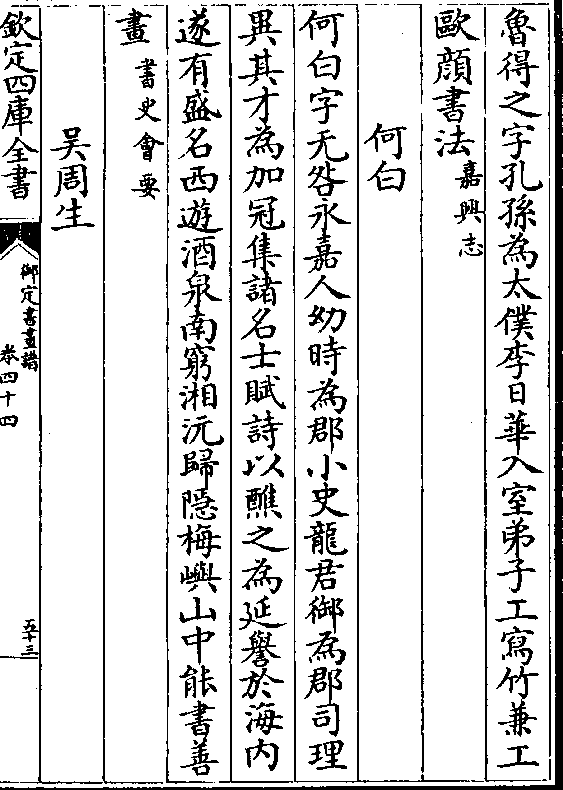 魯得之字孔孫為太僕李日華入室弟子工寫竹兼工
歐顔書法嘉興志
何白
何白字无咎永嘉人幼時為郡小史龍君御為郡司理
異其才為加冠集諸名士賦詩以醮之為延譽於海内
遂有盛名西遊酒泉南窮湘沅歸隱梅嶼山中能書善
畫書史會要
吴周生
欽定四庫全書
御定書畫譜
卷四十四
五十三